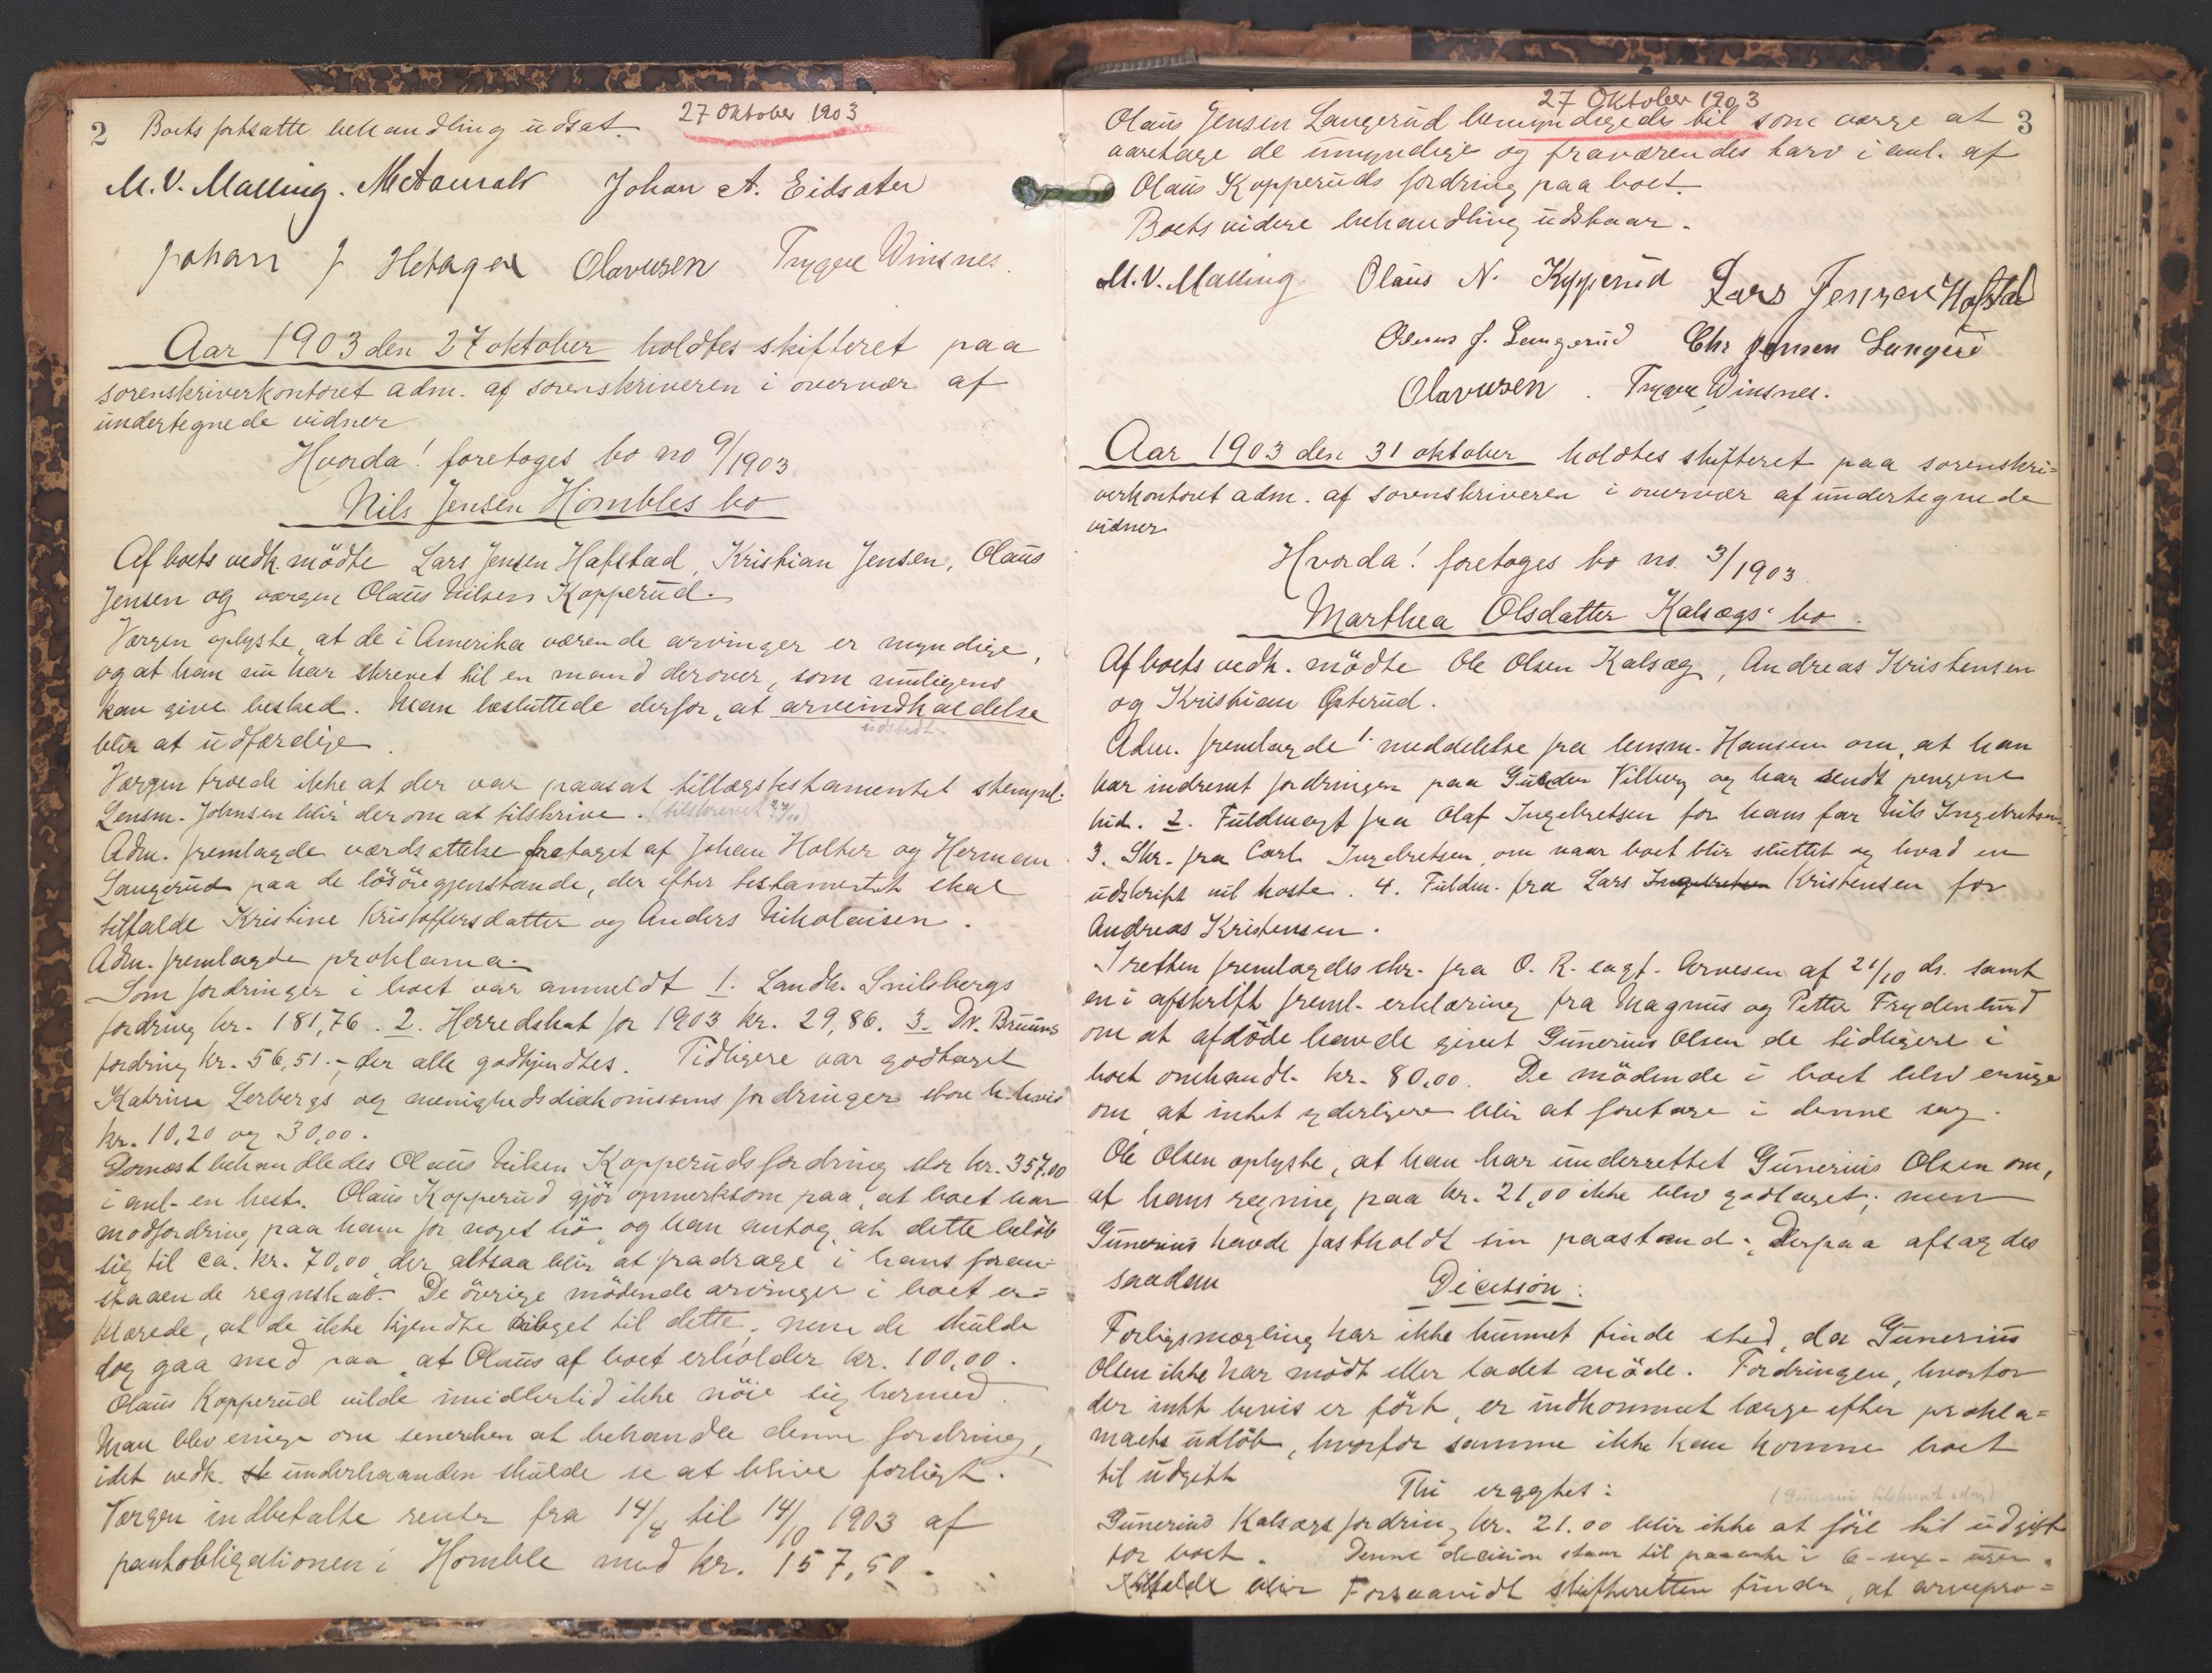 2
Boets fortsatte behandling udsat.
27 Oktober 1903
M. V. Malling. Johan A. Eidsater
Johan J Hetager Olavusen Trygve Winsnes.
Aar 1903 den 27 oktober holdtes skifteret paa
sorenskriverkontoret adm. af sorenskriveren i overvær af
undertegnede vidner
Hvorda! foretoges bo no 9/1903
Nils Jensen Hombles bo
Af boets vedk. mødte Lars Jensen Hafstad, Kristian Jensen, Olaus
Jensen og værgen Olaus Nilsen Kopperud.
Værgen oplyste, at de i Amerika værende arvinger er myndige,
og at han nu har skrevet til en mand derover, som muligens
kan give besked. Man besluttede derfor, at arveindkaldelse
udstedt.
blir at udfærdige.
Værgen troede ikke at der var paasat tillægstestamentet stempel.
Lensm. Johnsen blir derom at tilskrive. (tilskrevet 27/11)
Adm. fremlagde værdsættelse foretaget af Johan Holter og Herman
Langerud paa de løsøregjenstande, der efter testamentet skal
tilfalde Kristine Kristoffersdatter og Anders Nikolaisen.
Adm. fremlagde proklama.
Som fordringer i boet var anmeldt 1. Landh. Snilsbergs
fordring kr. 181,76. 2. Herredskat for 1903 kr. 29,86. 3. Dr. Bruuns
fordring kr. 56,51.-, der alle godkjendtes. Tidligere var godtaget
Katrine Lerbergs og menighedsdiakonissens fordringer store h.hvis
kr. 10,20 og 30,00.
Dernæst behandledes Olaus Nilsen Kopperuds fordring stor kr. 357,00
i anl. en hest. Olaus Kopperud gjør opmerksom paa, at boet har
modfordring paa ham for noget hø, og han antog, at dette beløb
sig til ca. kr. 70,00, der altsaa blir at fradrage i hans foran-
staaende regnskab. De øvrige mødende arvinger i boet er-
klærede, at de ikke kjendte noget til dette, men de skulde
dog gaa med paa, at Olaus af boet erholder kr. 100,00.
Olaus Kopperud vilde imidlertid ikke nøie sig hermed.
Man blev enige om senerhen at behandle denne fordring,
idet vedk. underhaanden skulde se at blive forligt.
Værgen indbetalte renter fra 14/4 til 14/10 1903 af
pantobligationen i Homble med kr. 157,50.
3
27 Oktober 1903
Olaus Jensen Langerud bemyndigedes til som værge at
varetage de umyndige og fraværendes tarv i anl. af
Olaus Kopperuds fordring paa boet.
Boets videre behandling udstaar.
M. V. Malling. Olaus N. Kopperud Lars Jensen Hafstad
Olaus J. Langerud Chr Jensen Langerud
Olavusen. Trygve Winsnes.
Aar 1903 den 31 oktober holdtes skifteret paa sorenskri-
verkontoret adm. af sorenskriveren i overvær af undertegnede
vidner
Hvorda! foretoges bo no. 3/1903.
Marthea Olsdatter Kalsægs bo.
Af boets vedk. mødte Ole Olsen Kalsæg, Andreas Kristensen
og Kristian Østerud.
Adm. fremlagde 1. meddelelse fra lensm. Hansen om, at han
har inddrevet fordringen paa Gulder Vilberg og har sendt pengene
hid. 2. Fuldmagt fra Olaf Ingebretsen for hans far Nils Ingebretsen.
3. Skr. fra Carl Ingebretsen, om naar boet blir sluttet og hvad en
udskrift vil koste. 4. Fuldm. fra Lars Ingebretsen Kristensen for
Andreas Kristensen.
I retten fremlagdes skr. fra O. R. sagf. Arnesen af 21/10 ds. samt
en i afskrift freml. erklæring fra Magnus og Petter Frydenlund
om at afdøde havde givet Gunerius Olsen de tidligere i
boet omhandl. kr. 80,00. De mødende i boet blev enige
om at intet yderligere blir at foretage i denne sag.
Ole Olsen oplyste, at han har underrettet Gunerius Olsen om,
at hans regning paa kr. 21,00 ikke blev godtaget; men
Gunerius havde fastholdt sin paastand. Derpaa afsagdes
saadan Decision:
Forligsmægling har ikke kunnet finde sted, da Gunerius
Olsen ikke har mødt eller ladet møde. Fordringen, hvorfor
der intet bevis er ført, er indkommet længe efter prokla-
maets udløb, hvorfor samme ikke kan komme boet
til udgift
Thi eragtes:
(Gunerius tilskrevet)
Gunerius Kalsægs fordring kr. 21.00 blir ikke at føre til udgift
for boet. Denne decision staar til paaanke i 6-sex-uger.
Forsaavidt skifteretten finder, at arvepro-